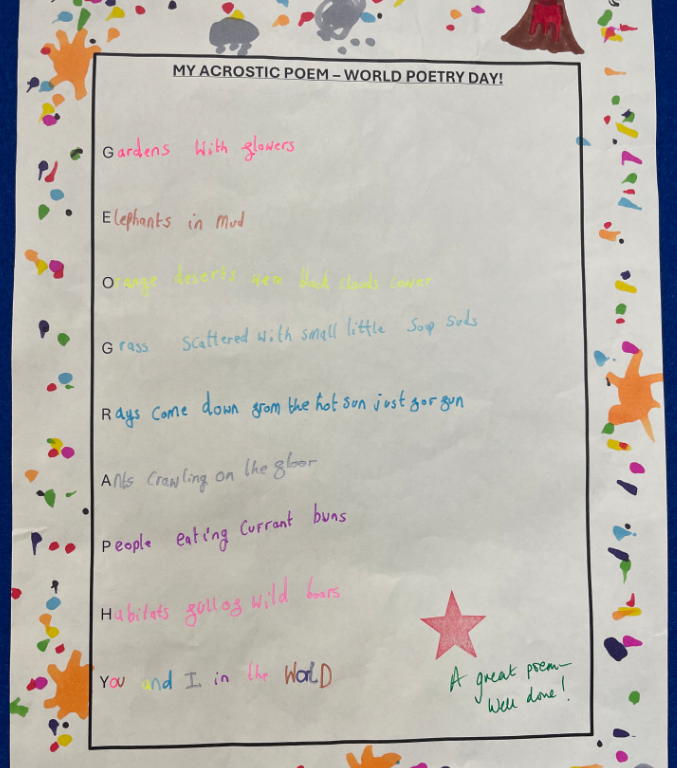 MY ACROSTIC POEM – WORLD POETRY DAY!
Gardens With flowers
Elephants in mud
Orange deserts black clouds cover
Grass Scattered with small little Soap Suds
Rays come down from the hot sun just for fun
Ants Crawling on the floor
People eating Currant buns
Habitats full of wild boars
You and I in the WorlD
A great poem –
Well done!